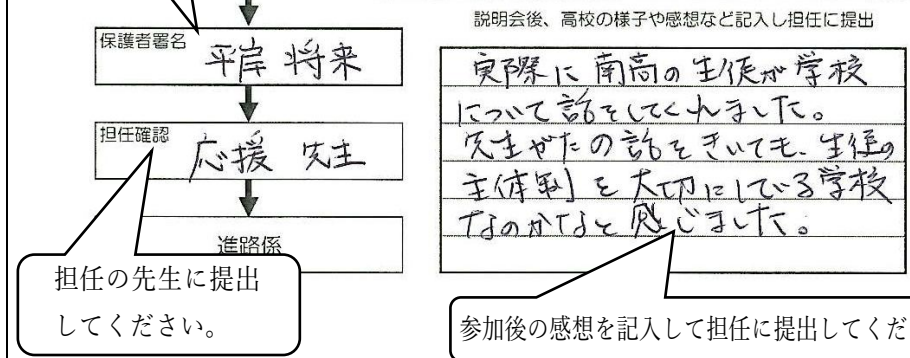 保護者署名
平岸 将来
担任確認
応援 先生
進路係
担任の先生に提出
してください。
説明会後、高校の様子や感想など記入し担任に提出
実際に南高の生徒が学校
について話をしてくれました。
先生がたの話をきいても、生徒の
主体性を大切にしている学校
なのかなと感じました。
参加後の感想を記入して担任に提出してくだ